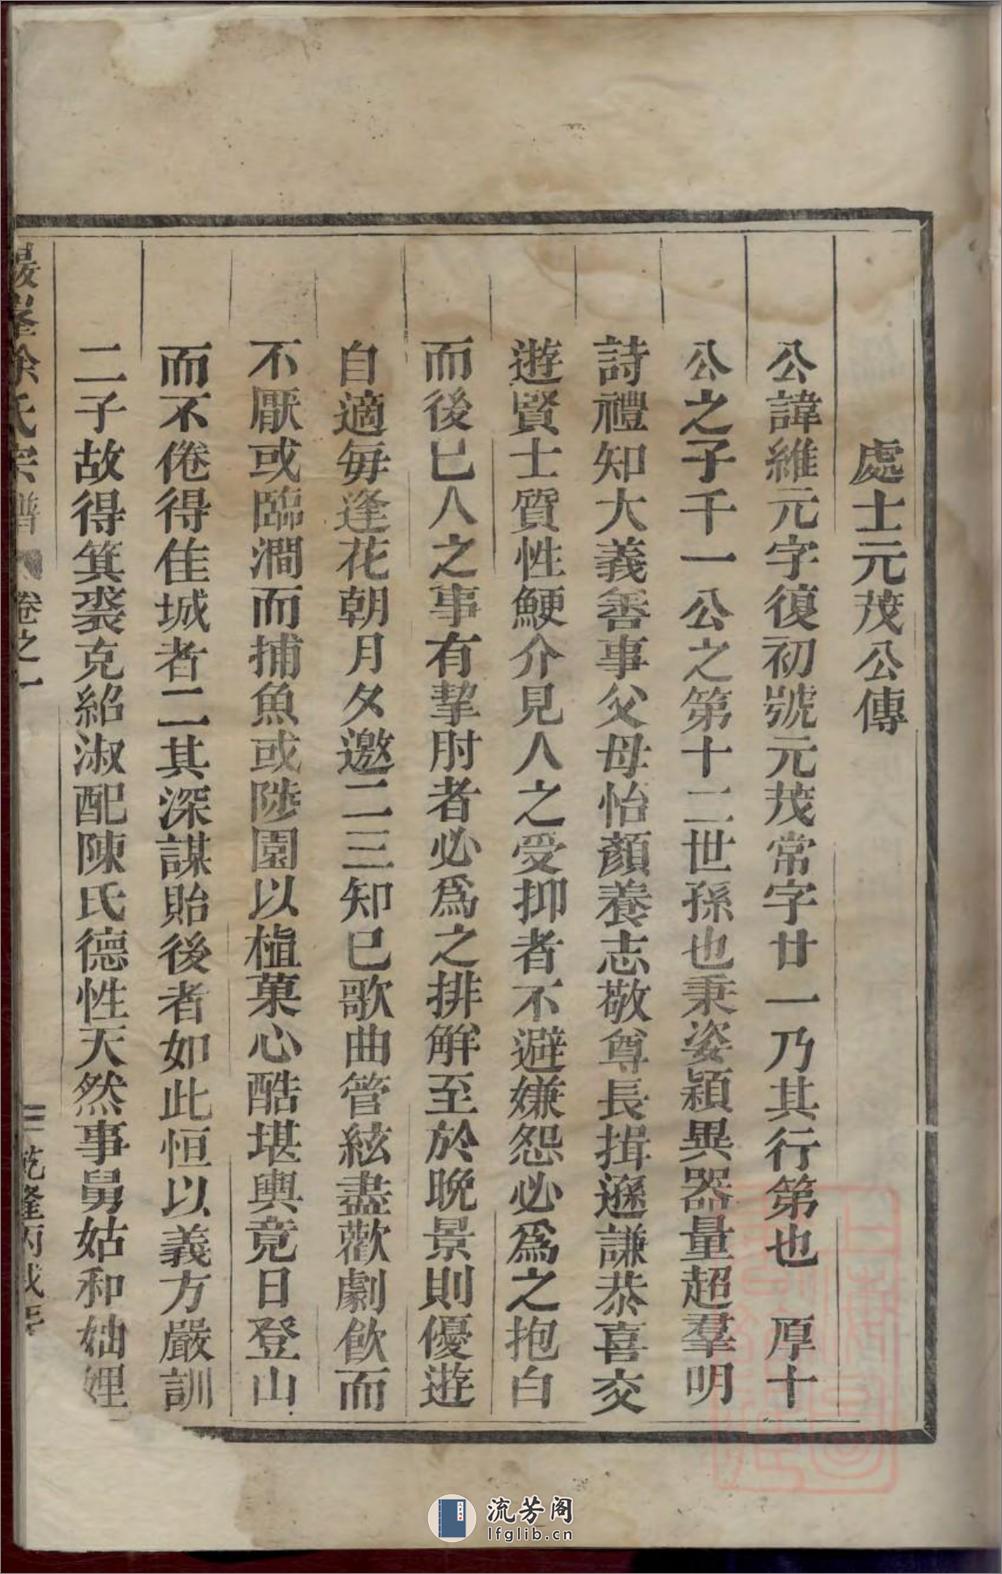 處士元茂公傳
公諱維元字復初號元茂常字廿一乃其行第也 厚十
公之子千一公之第十二世孫也秉姿穎異器量超羣明
詩禮知大義善事父母怡顏養志敬尊長揖遜謙恭喜交
遊賢士質性鯁介見人之受抑者不避嫌怨必爲之抱白
而後已人之事有掣肘者必爲之排解至於晚景則優遊
自適每逢花朝月夕邀二三知己歌曲管絃盡歡劇飲而
不厭或臨澗而捕魚或陟園以植菓心酷堪輿竟日登山
而不倦得佳城者二其深謀貽後者如此恒以義方嚴訓
二子故得箕裘克紹淑配陳氏德性天然事舅姑和妯娌
峯徐氏宗譜 卷之一 乾隆丙戌
流芳阁
lfglib.cn